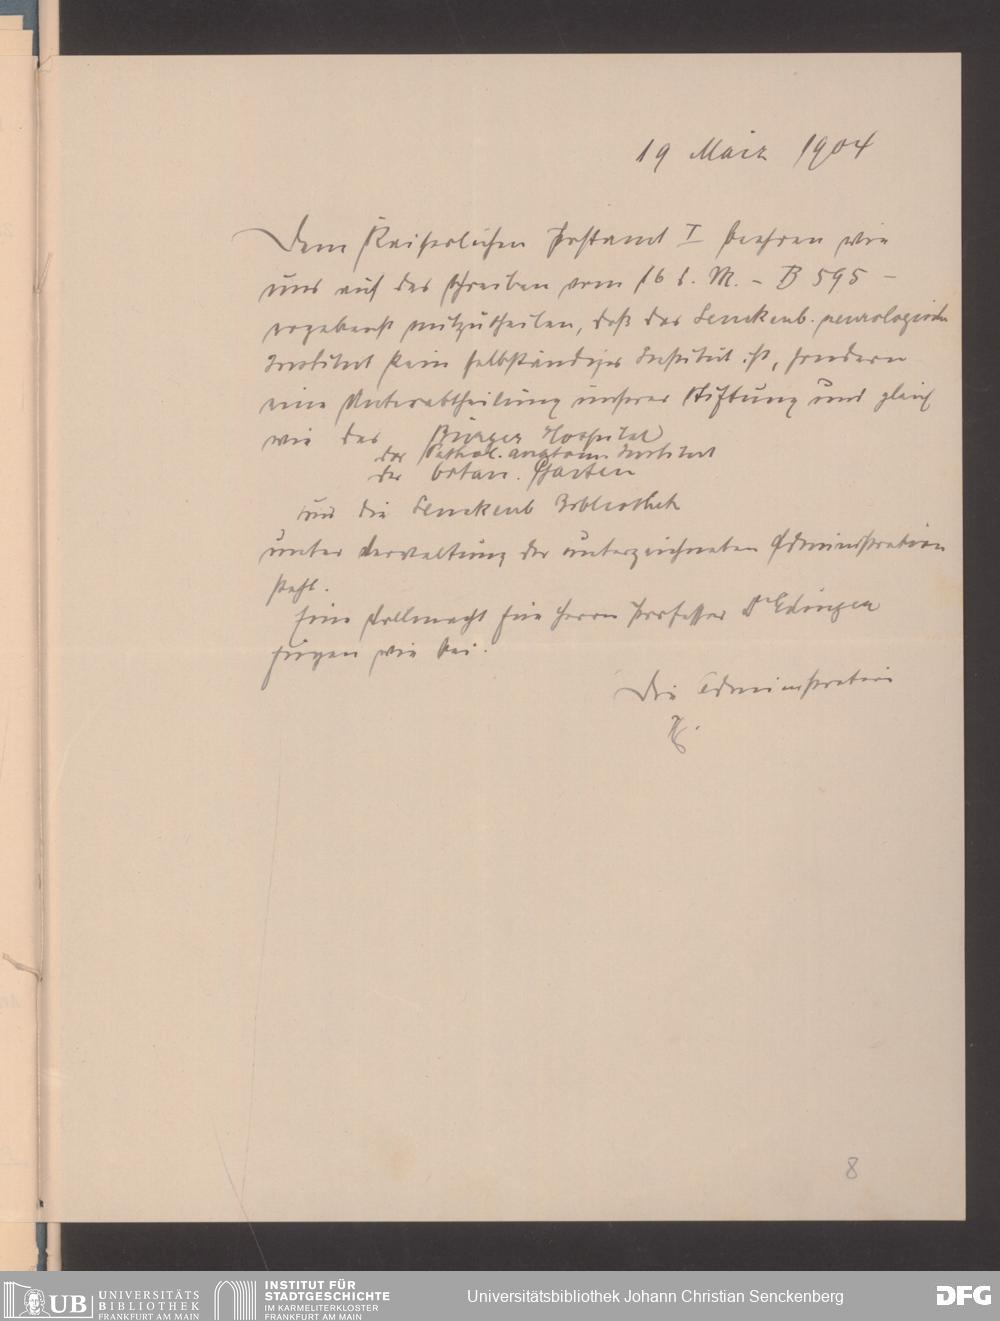 19 März 1904
Dem Kaiserlichen Postamt I beehren wir
uns auf das Schreiben vom 16 d. M. - B 595 -
ergebenst mitzutheilen, daß das Senckenb. neurologische
Institut kein selbständiges Institut ist, sondern
eine Unterabtheilung unserer Stiftung und gleich
wie das Bürger Hospital
das Pathol. anatom. Institut
der botan. Garten
und die Senckenb Bibliothek
unter Verwaltung der unterzeichneten Administration
steht.
Eine Vollmacht für Herrn Professor Dr Edinger
fügen wir bei.
Die Administration
8
UB UNIVERSITÄTS
BIBLIOTHEK
FRANKFURT AM MAIN
INSTITUT FÜR
STADTGESCHICHTE
IM KARMELITERKLOSTER
FRANKFURT AM MAIN
Universitätsbibliothek Johann Christian Senckenberg
DFG